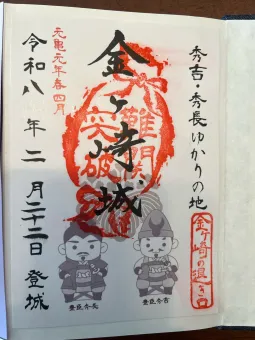 秀吉・秀長ゆかりの地
金ヶ崎の退き口
金ヶ崎城
難関突破
元亀元年春四月
令和八年二月二十二日 登城
豊臣秀長
豊臣秀吉